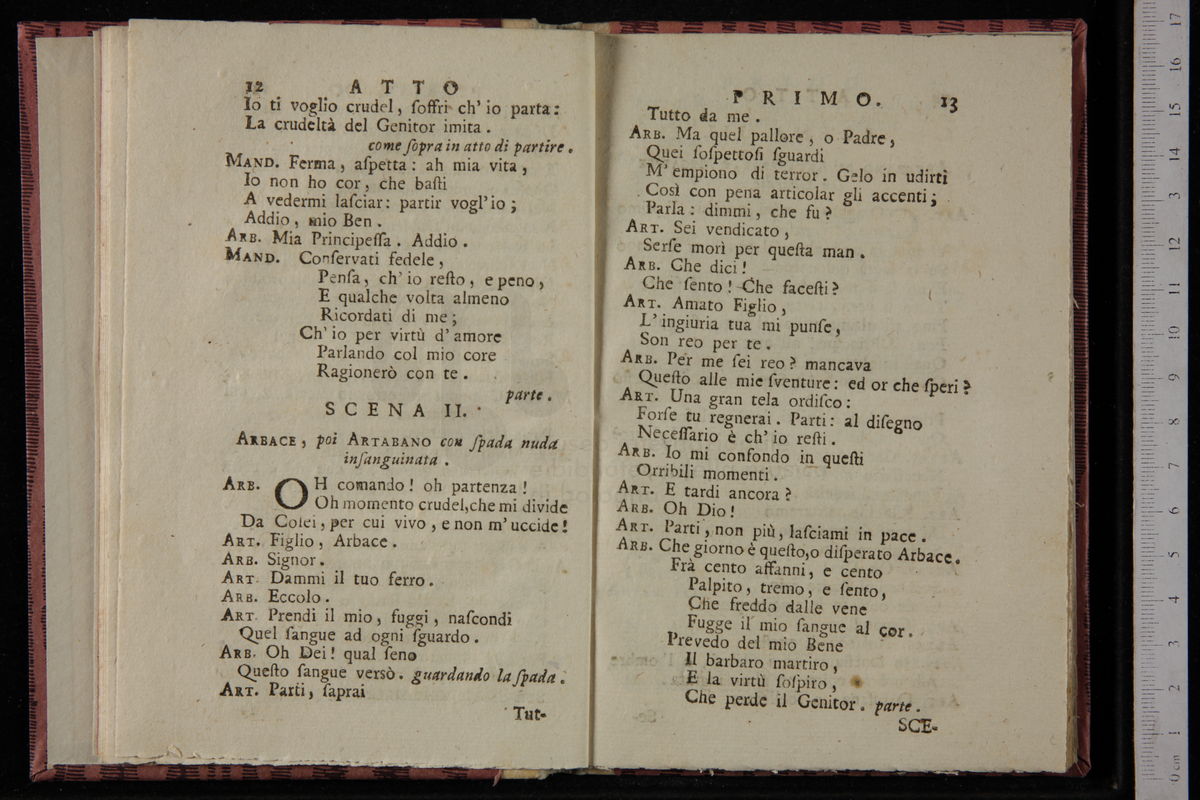 12 ATTO
Io ti voglio crudel, ſoffri ch' io parta:
La crudeltà del Genitor imita.
come ſopra in atto di partire.
MAND. Ferma, aſpetta: ah mia vita,
Io non ho cor, che baſti
A vedermi laſciar: partir vogl' io;
Addio, mio Ben.
ARB. Mia Principeſſa. Addio.
MAND. Conſervati fedele,
Penſa, ch' io reſto, e peno,
E qualche volta almeno
Ricordati di me;
Ch' io per virtù d' amore
Parlando col mio core
Ragionerò con te.
parte.
SCENA II.
ARBACE, poi ARTABANO con ſpada nuda
inſanguinata.
ARB. OH comando! oh partenza!
Oh momento crudel, che mi divide
Da Colei, per cui vivo, e non m' uccide!
ART. Figlio, Arbace.
ARB. Signor.
ART. Dammi il tuo ferro.
ARB. Eccolo.
ART. Prendi il mio, fuggi, naſcondi
Quel ſangue ad ogni ſguardo.
ARB. Oh Dei! qual ſeno
Queſto ſangue versò. guardando la ſpada.
ART. Parti, ſaprai
Tut-
PRIMO. 13
Tutto da me.
ARB. Ma quel pallore, o Padre,
Quei ſoſpettoſi ſguardi
M' empiono di terror. Gelo in udirti
Così con pena articolar gli accenti;
Parla: dimmi, che fu?
ART. Sei vendicato,
Serſe morì per queſta man.
ARB. Che dici!
Che ſento! Che faceſti?
ART. Amato Figlio,
L' ingiuria tua mi punſe,
Son reo per te.
ARB. Per me ſei reo? mancava
Queſto alle mie ſventure: ed or che ſperi?
ART. Una gran tela ordiſco:
Forſe tu regnerai. Parti: al diſegno
Neceſſario è ch' io reſti.
ARB. Io mi confondo in queſti
Orribili momenti.
ART. E tardi ancora?
ARB. Oh Dio!
ART. Parti, non più, laſciami in pace.
ARB. Che giorno è queſto, o diſperato Arbace.
Frà cento affanni, e cento
Palpito, tremo, e ſento,
Che freddo dalle vene
Fugge il mio ſangue al cor.
Prevedo del mio Bene
Il barbaro martiro,
E la virtù ſoſpiro,
Che perde il Genitor. parte.
SCE-
0 cm 1 2 3 4 5 6 7 8 9 10 11 12 13 14 15 16 17